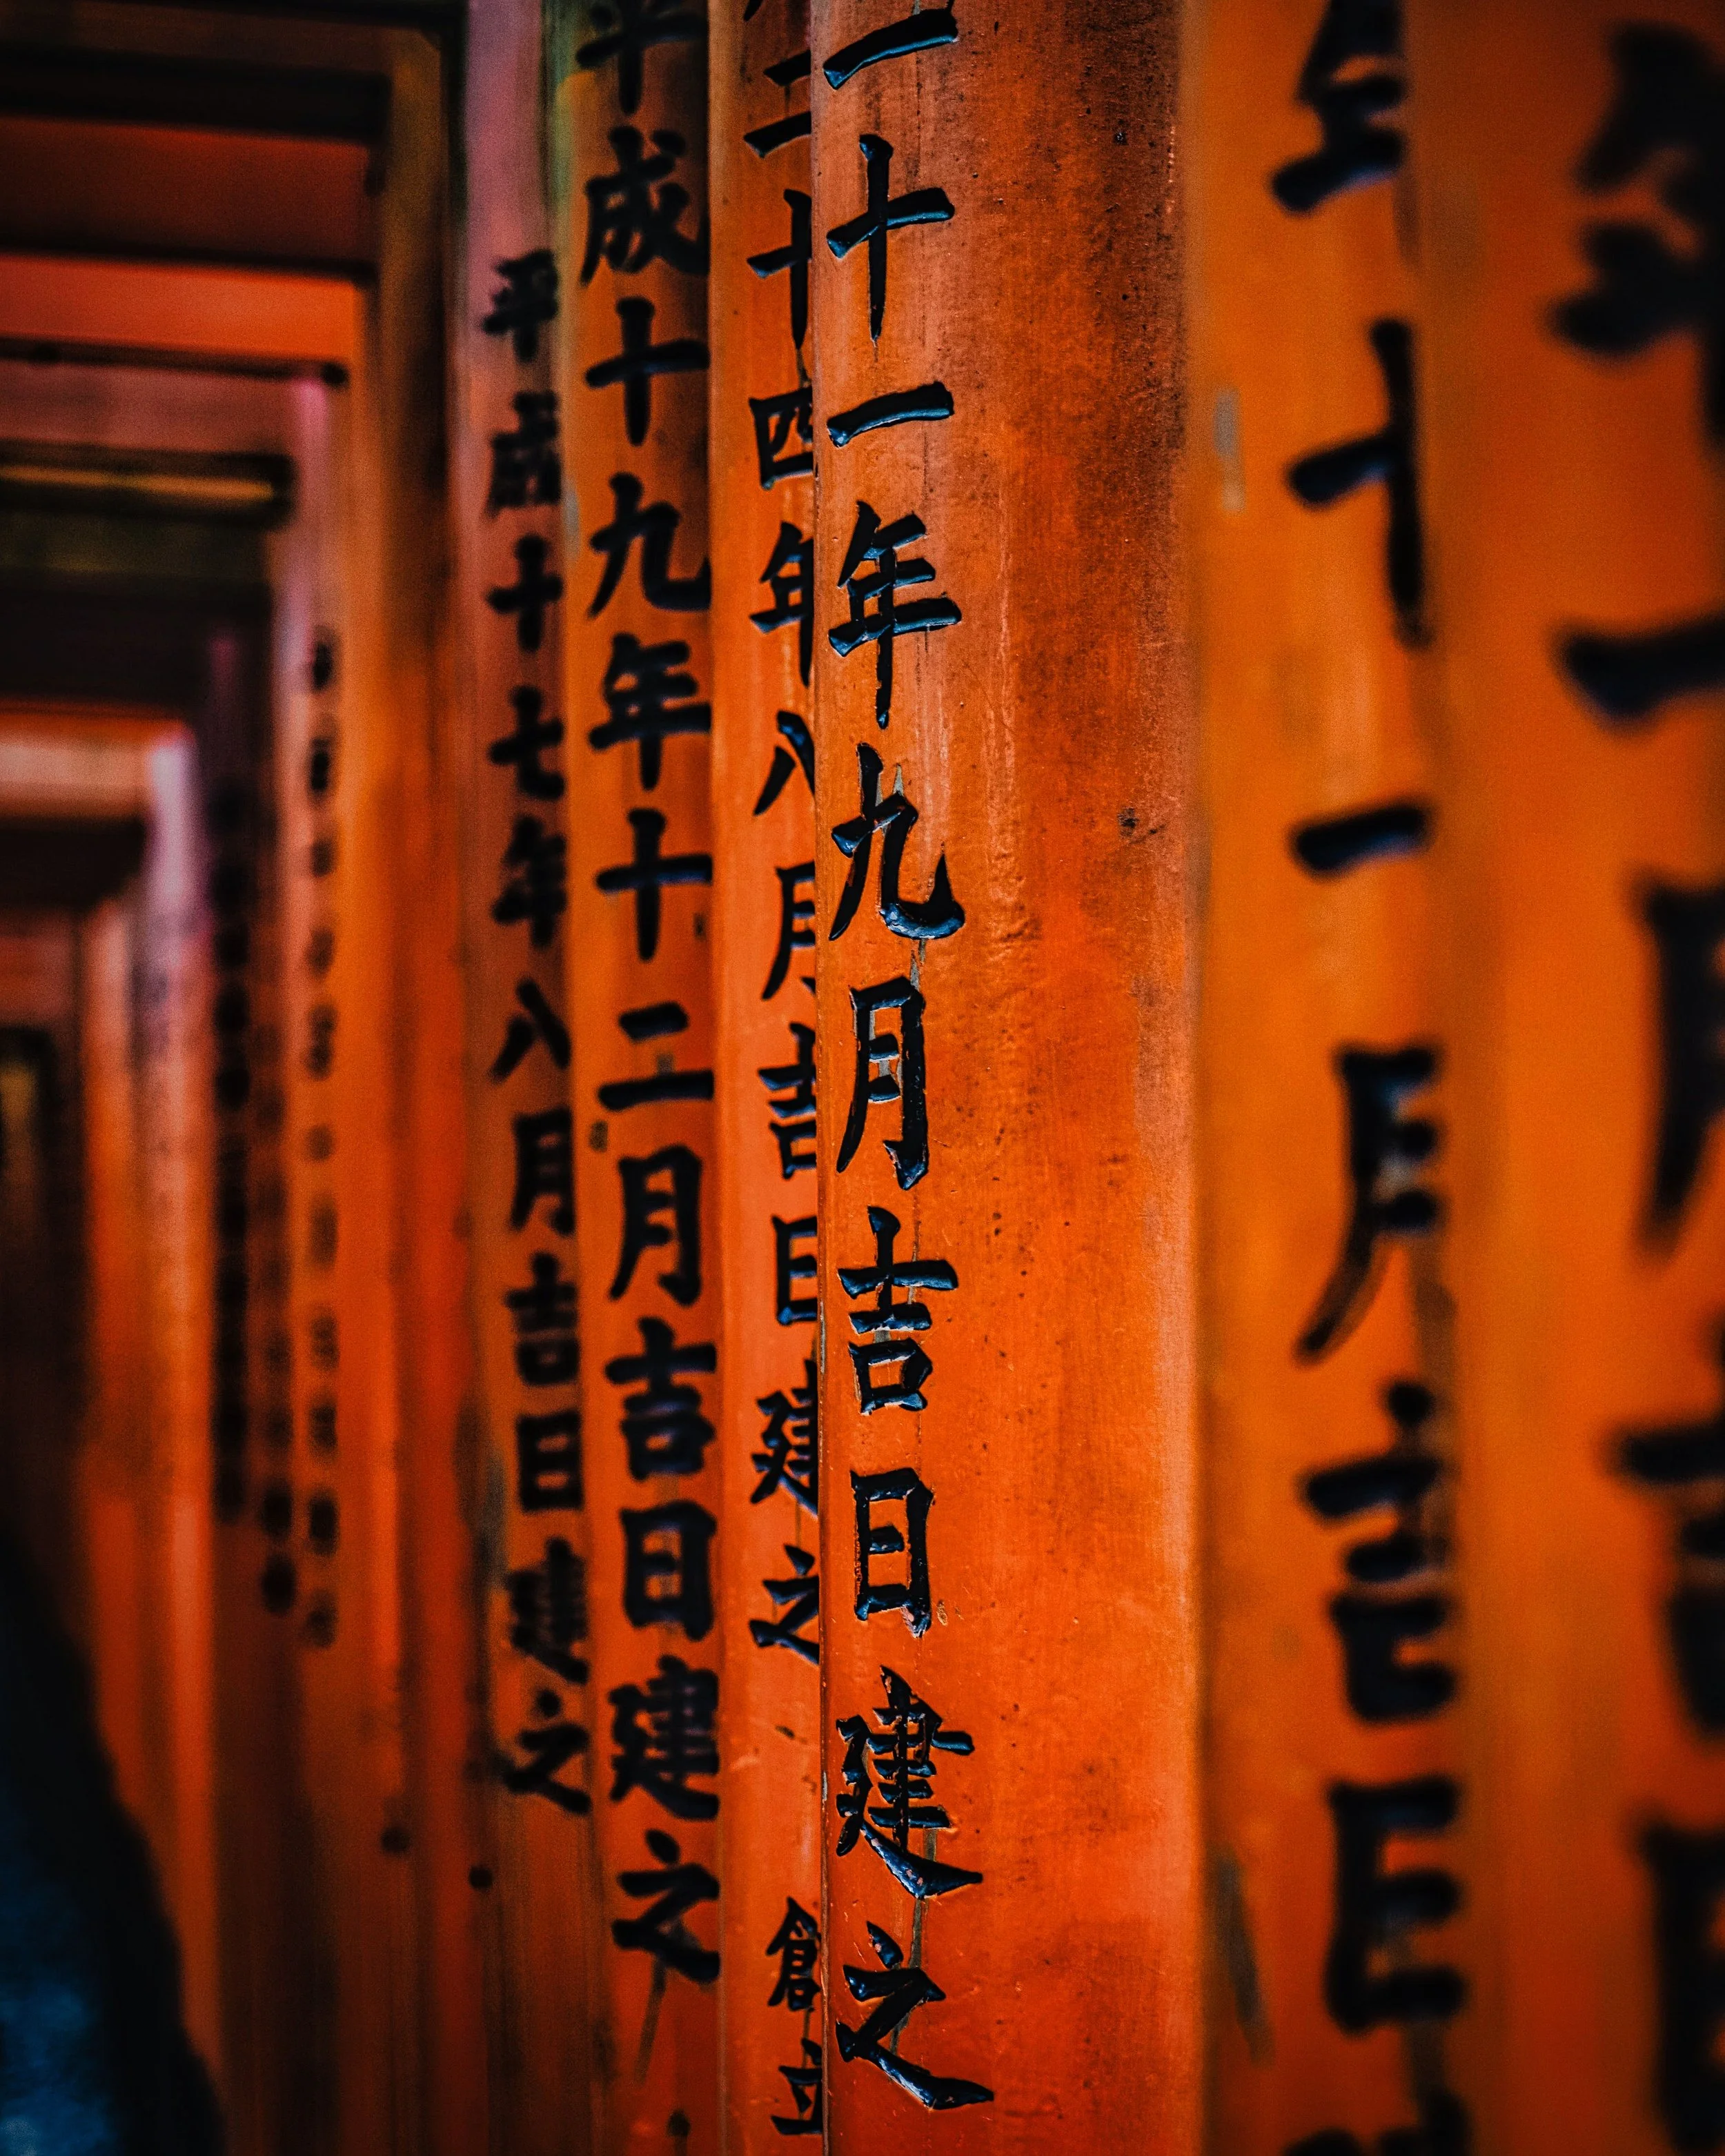 年十一月吉日
二十一年九月吉日建之
二十四年八月吉日建之 創立
平成十九年十二月吉日建之
平成十七年八月吉日建之